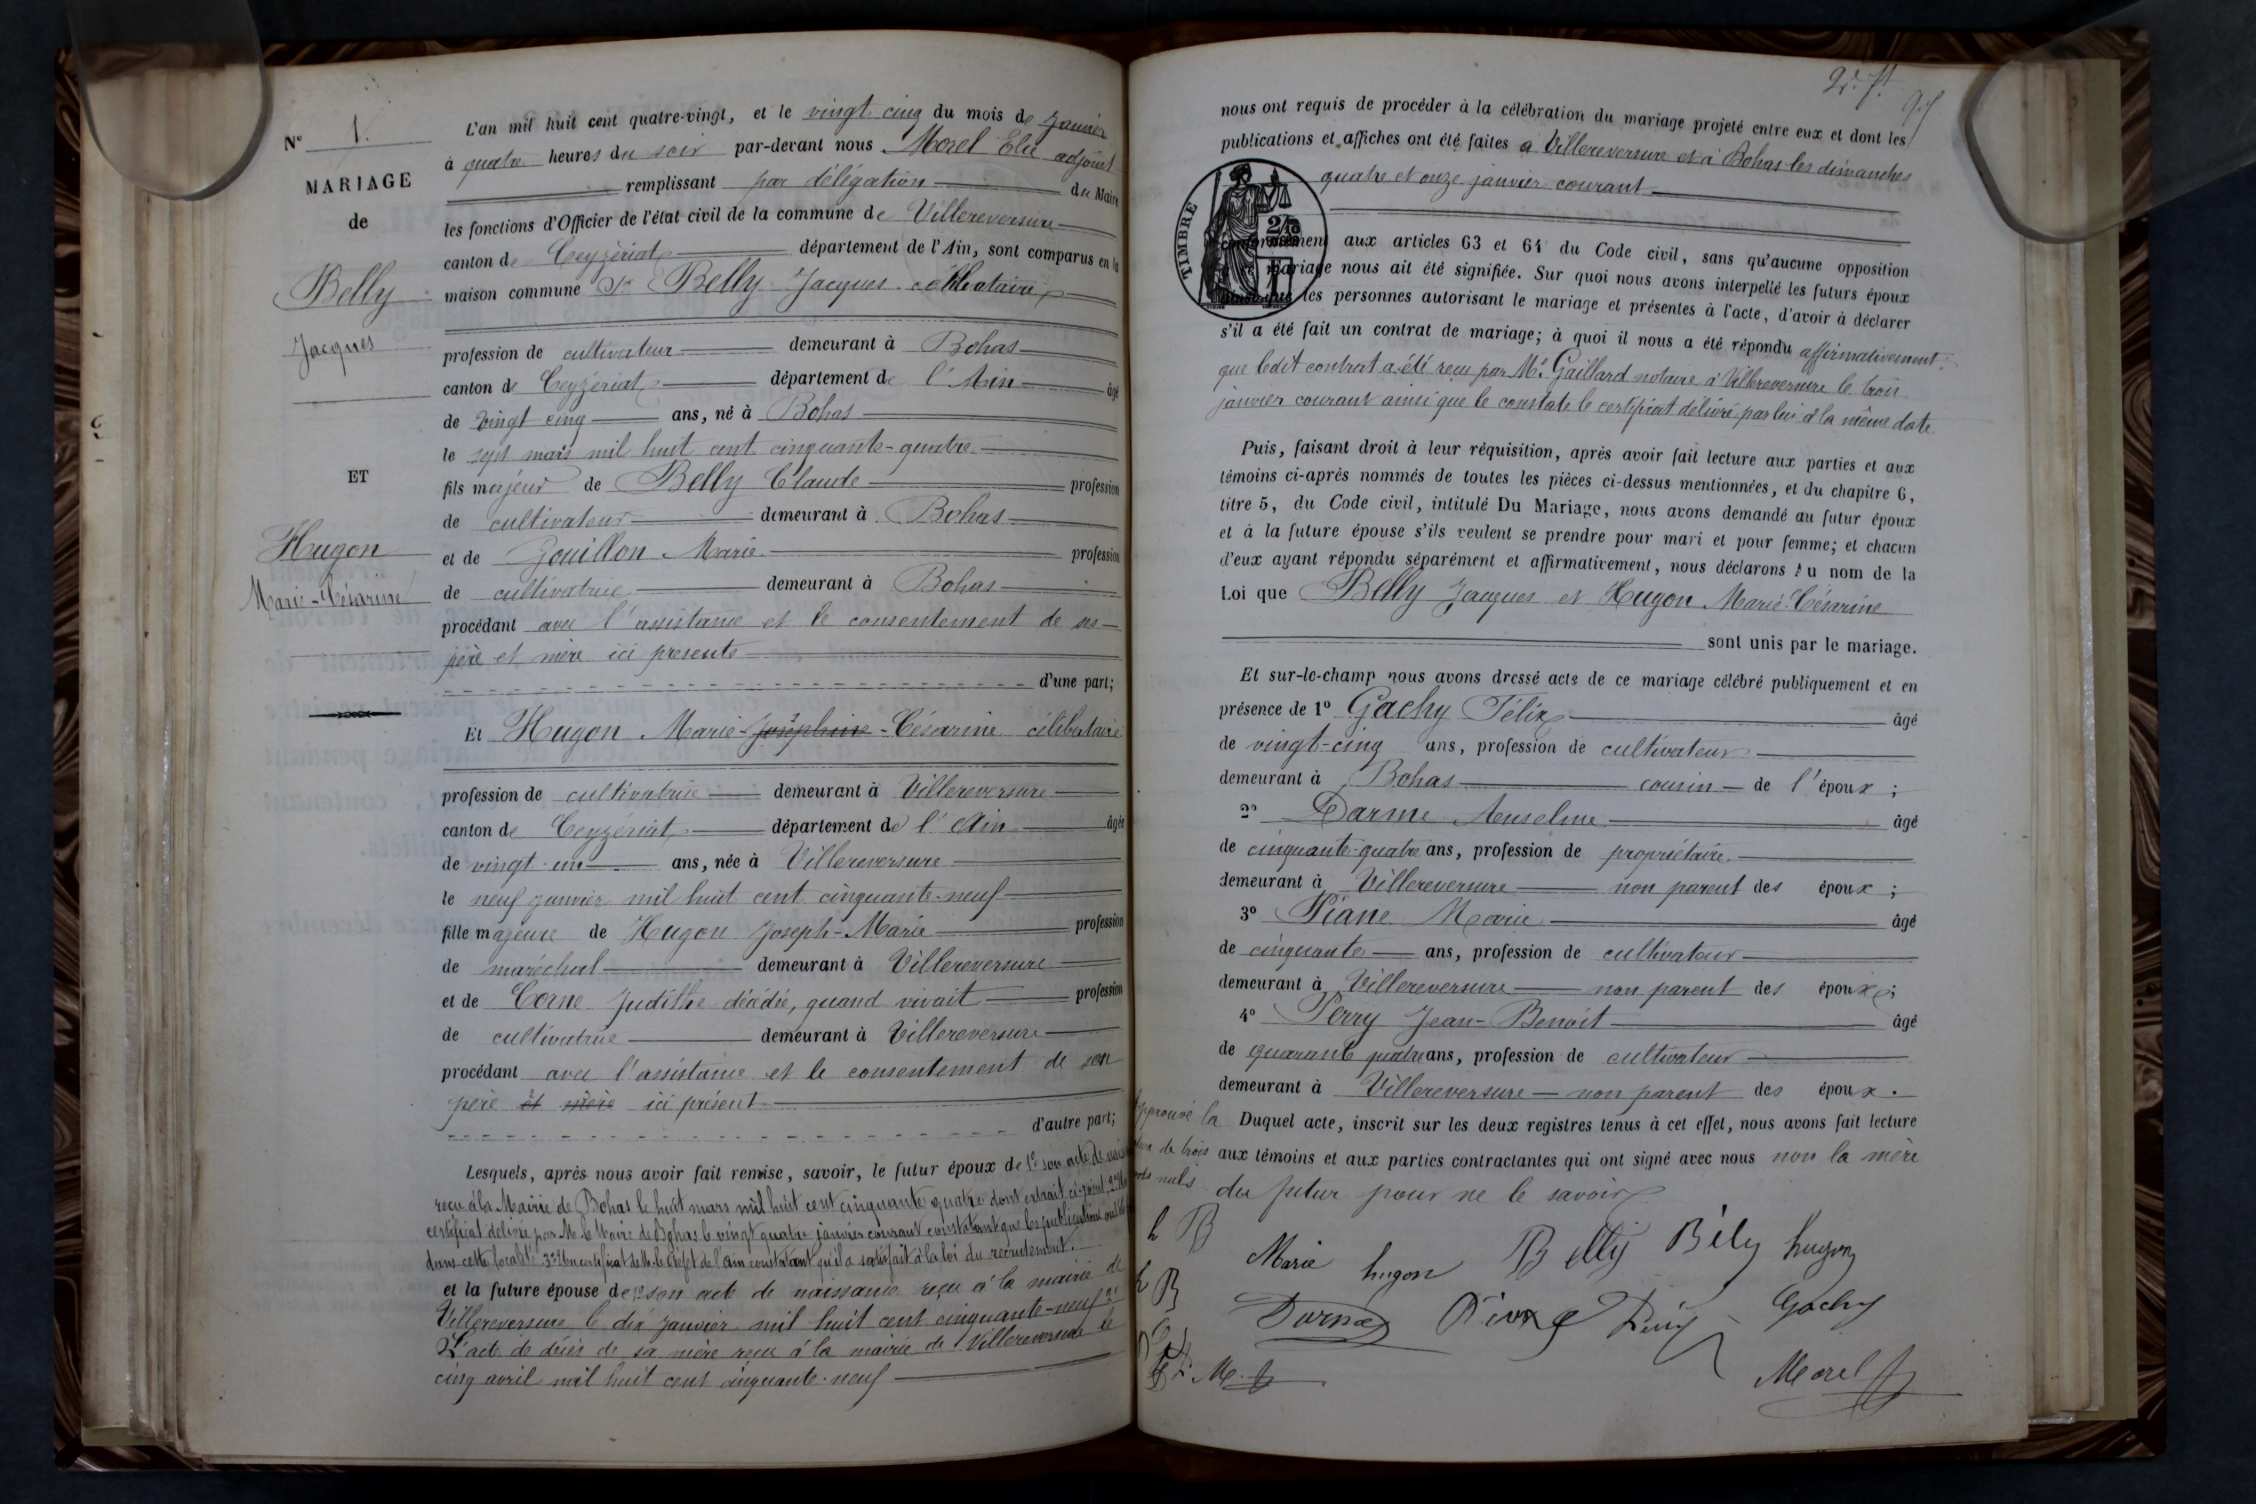 N° 1.
MARIAGE
de
Belly
Jacques
ET
Hugon
Marie-Césarine
L'an mil huit cent quatre-vingt, et le vingt cinq du mois de janvier
à quatre heures du soir par-devant nous Morel Elie adjoint
remplissant par délégation du Maire
les fonctions d'Officier de l'état civil de la commune de Villereversure
canton de Ceyzériat département de l'Ain, sont comparus en la
maison commune Sr Belly Jacques célibataire
profession de cultivateur demeurant à Bohas
canton de Ceyzériat département de l'Ain âgé
de vingt cinq ans, né à Bohas
le sept mars mil huit cent cinquante-quatre
fils majeur de Belly Claude profession
de cultivateur demeurant à Bohas
et de Gouillon Marie profession
de cultivatrice demeurant à Bohas
procédant avec l'assistance et le consentement de ses
père et mère ici présents
d'une part;
Et Hugon Marie-Joséphine-Césarine célibataire
profession de cultivatrice demeurant à Villereversure
canton de Ceyzériat département de l'Ain âgée
de vingt-un ans, née à Villereversure
le neuf janvier mil huit cent cinquante-neuf
fille majeure de Hugon Joseph-Marie profession
de maréchal demeurant à Villereversure
et de Corne Judithe décédée, quand vivait profession
de cultivatrice demeurant à Villereversure
procédant avec l'assistance et le consentement de son
père et mère ici présent
d'autre part;
Lesquels, après nous avoir fait remise, savoir, le futur époux de 1° son acte de
reçu à la Mairie de Bohas le huit mars mil huit cent cinquante quatre dont extrait ci-joint 2°
certificat délivré par M. le Maire de Bohas le vingt quatre janvier courant constatant que les publications
dans cette localité 3° Un certificat de M. le Préfet de l'Ain constatant qu'il a satisfait à la loi du recrutement.
et la future épouse de 1° son acte de naissance reçu à la mairie de
Villereversure le dix janvier mil huit cent cinquante-neuf 2°
L'acte de décès de sa mère reçu à la mairie de Villereversure le
cinq avril mil huit cent cinquante-neuf
nous ont requis de procéder à la célébration du mariage projeté entre eux et dont les
publications et affiches ont été faites à Villereversure et à Bohas les dimanches
quatre et onze janvier courant
TIMBRE
conformément aux articles 63 et 64 du Code civil, sans qu'aucune opposition
mariage nous ait été signifiée. Sur quoi nous avons interpellé les futurs époux
les personnes autorisant le mariage et présentes à l'acte, d'avoir à déclarer
s'il a été fait un contrat de mariage; à quoi il nous a été répondu affirmativement:
que ledit contrat a été reçu par Me Gaillard notaire à Villereversure le trois
janvier courant ainsi que le constate le certificat délivré par lui à la même date
Puis, faisant droit à leur réquisition, après avoir fait lecture aux parties et aux
témoins ci-après nommés de toutes les pièces ci-dessus mentionnées, et du chapitre 6,
titre 5, du Code civil, intitulé Du Mariage, nous avons demandé au futur époux
et à la future épouse s'ils veulent se prendre pour mari et pour femme; et chacun
d'eux ayant répondu séparément et affirmativement, nous déclarons au nom de la
Loi que Belly Jacques et Hugon Marie-Césarine
sont unis par le mariage.
Et sur-le-champ nous avons dressé acte de ce mariage célébré publiquement et en
présence de 1° Gachy Félix âgé
de vingt-cinq ans, profession de cultivateur
demeurant à Bohas cousin de l'époux;
2° Darme Anselme âgé
de cinquante-quatre ans, profession de propriétaire
demeurant à Villereversure non parent des époux;
3° Piane Marie âgé
de cinquante ans, profession de cultivateur
demeurant à Villereversure non parent des époux;
4° Perry Jean-Benoit âgé
de quarante quatre ans, profession de cultivateur
demeurant à Villereversure non parent des époux.
Duquel acte, inscrit sur les deux registres tenus à cet effet, nous avons fait lecture
aux témoins et aux parties contractantes qui ont signé avec nous non la mère
du futur pour ne le savoir
approuvé la
de trois
mots nuls
h B
Marie hugon Belly Bély hugon
Gachy
M.
Morel